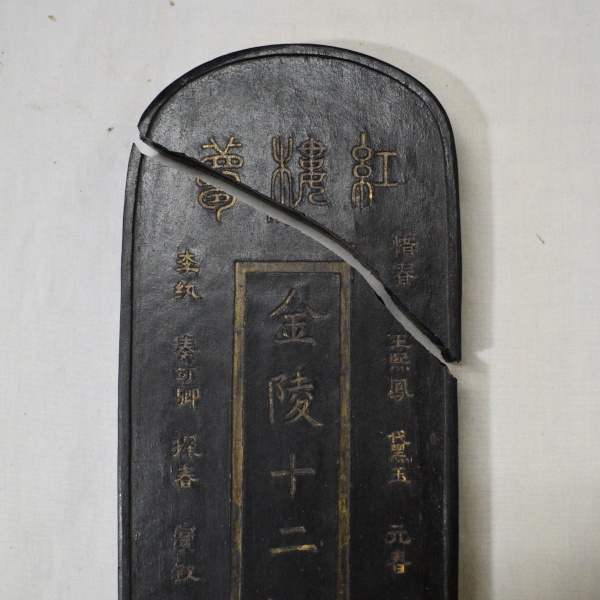 紅樓夢
惜春 王熙鳳 黛玉 元春
金陵十二
李紈 秦可卿 探春 寶釵